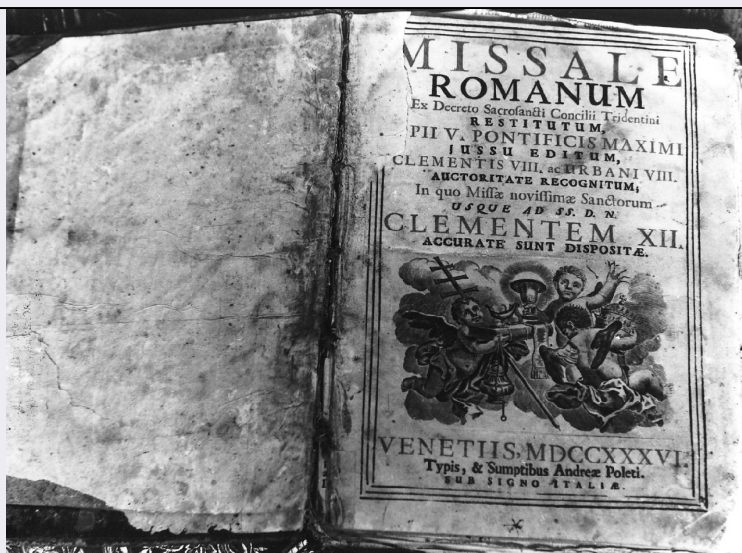 MISSALE
ROMANUM
Ex Decreto Sacrosancti Concilii Tridentini
RESTITUTUM,
PII V. PONTIFICIS MAXIMI
JUSSU EDITUM,
CLEMENTIS VIII. ac URBANI VIII.
AUCTORITATE RECOGNITUM;
In quo Missæ novissimæ Sanctorum
USQUE AD SS. D. N.
CLEMENTEM XII.
ACCURATE SUNT DISPOSITÆ.
VENETIIS, MDCCXXXVI.
Typis, & Sumptibus Andreæ Poleti.
SUB SIGNO ITALIÆ.